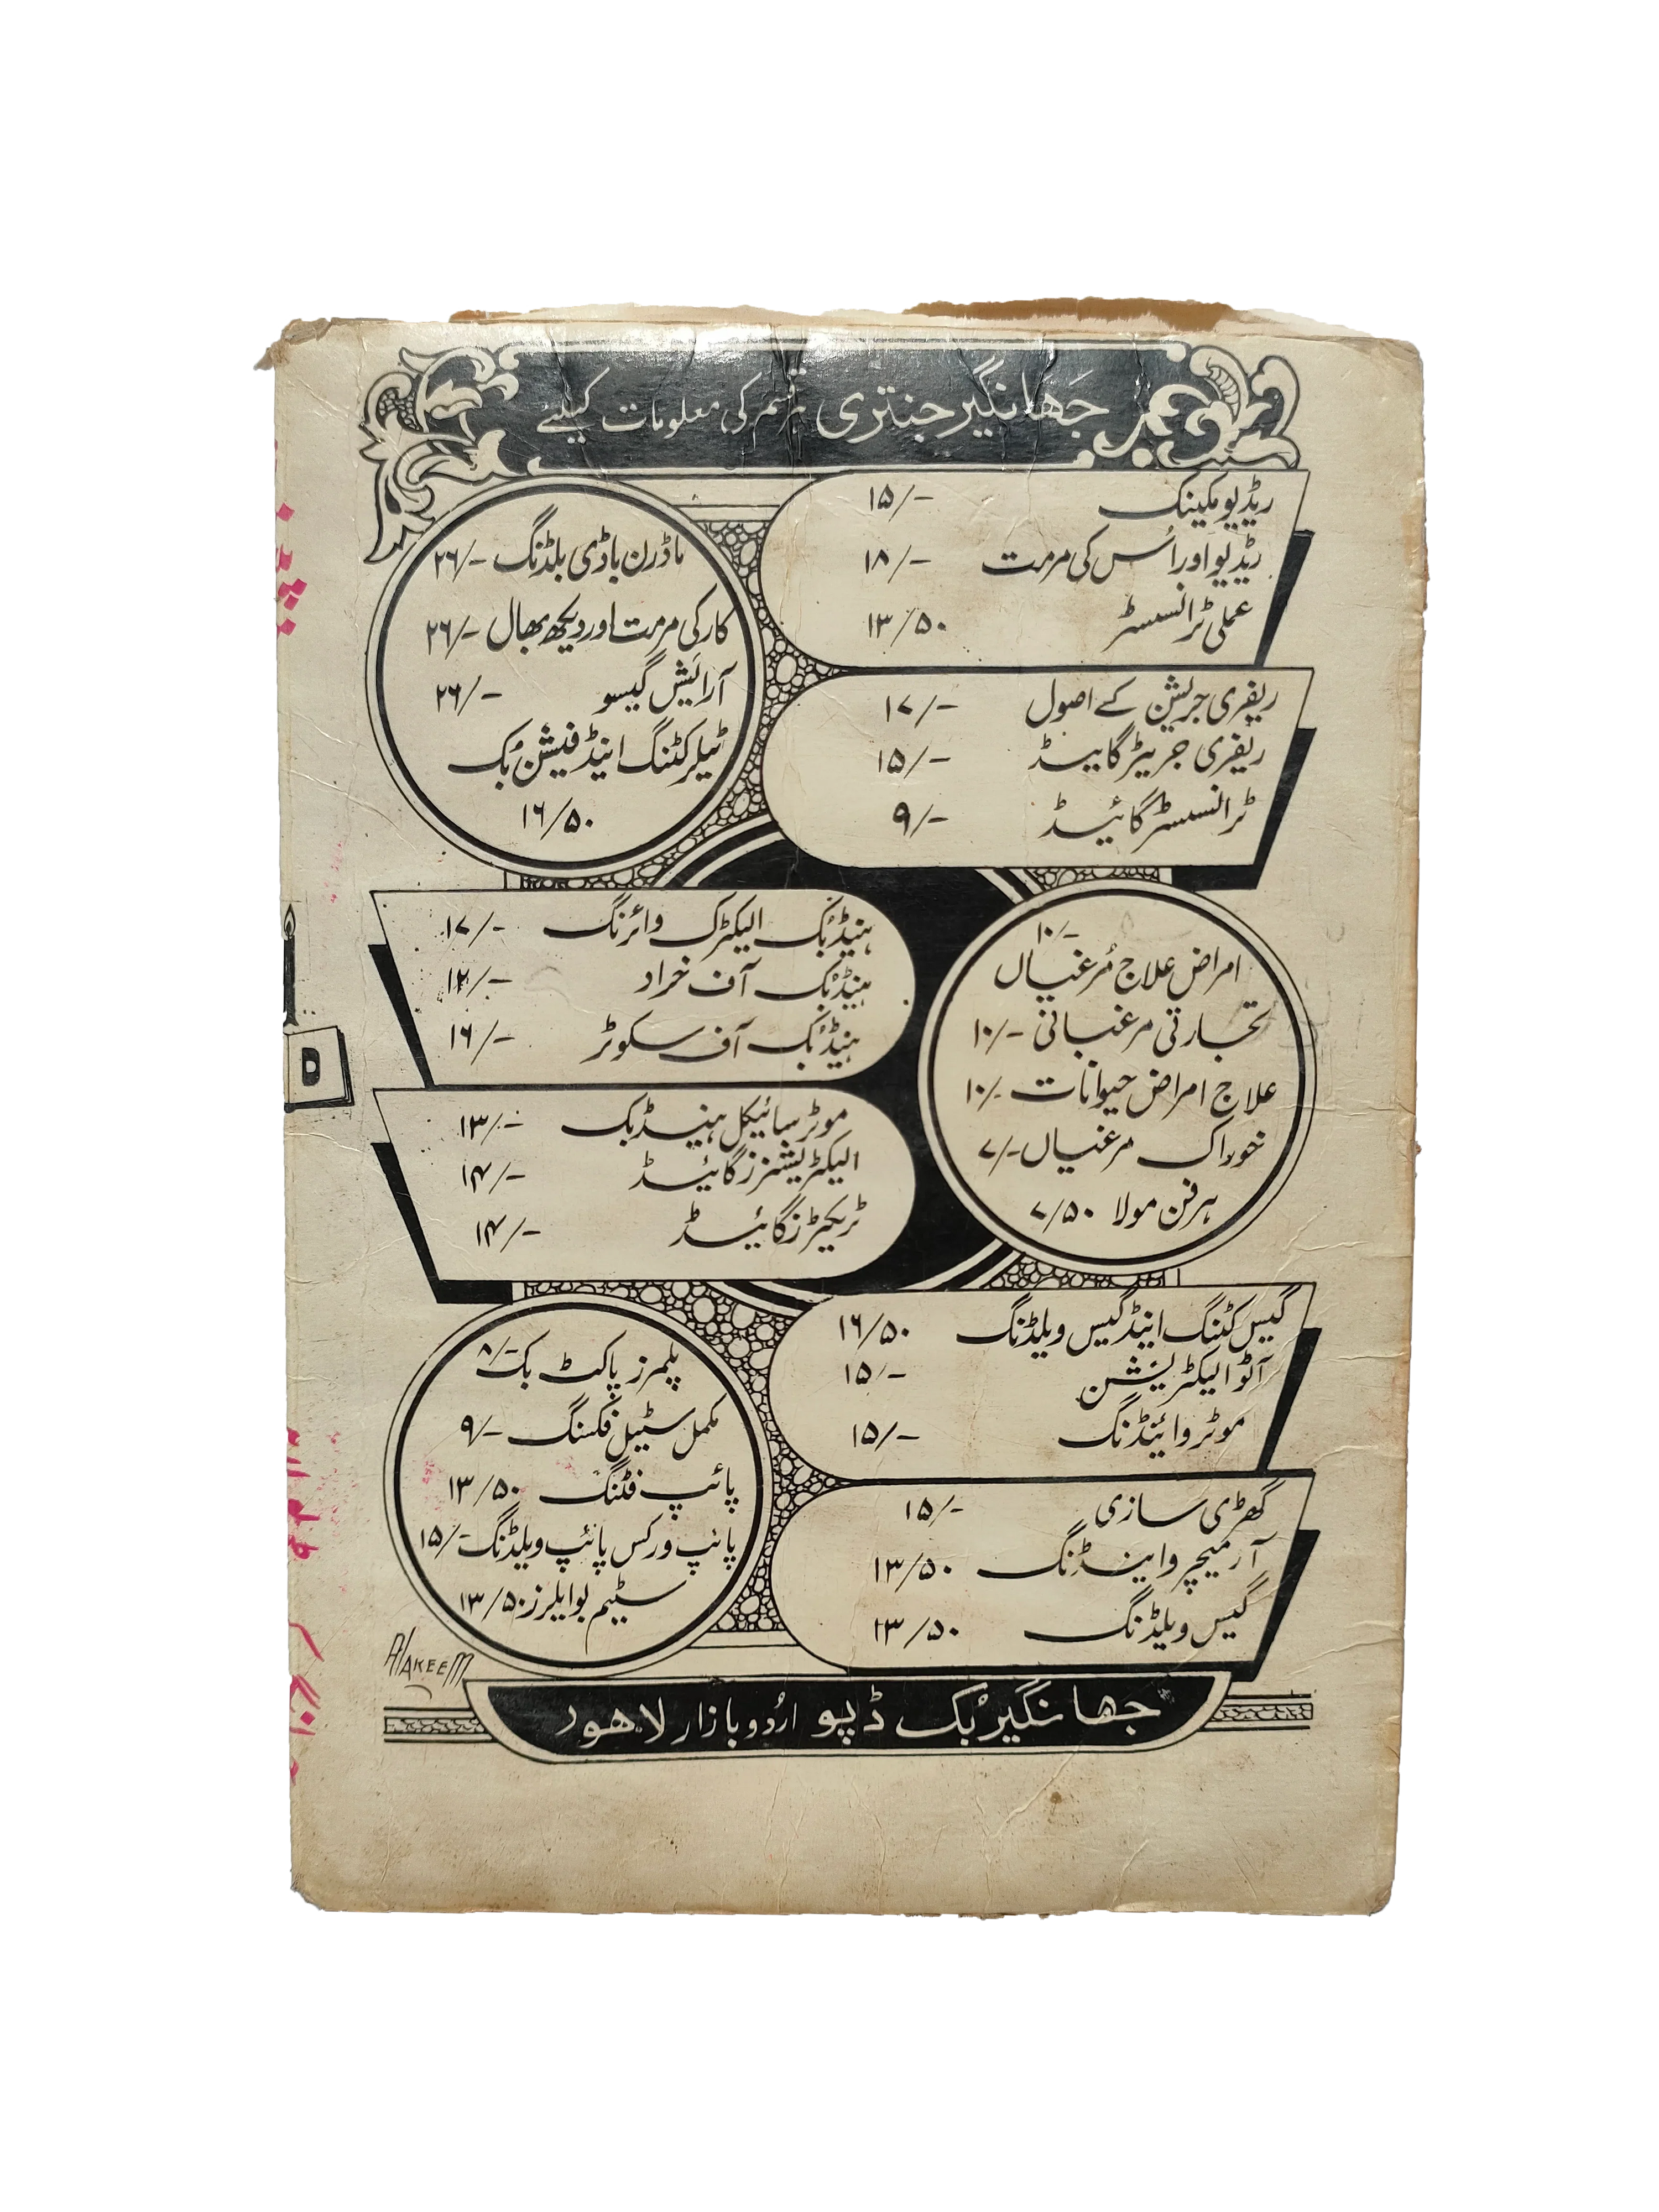 جہانگیر جنتری ہر قسم کی معلومات کیلئے
ریڈیو مکینک ۱۵/-
ریڈیو اور اُس کی مرمت ۱۸/-
عملی ٹرانسسٹر ۱۳/۵۰
ریفری جریشن کے اصول ۱۷/-
ریفری جریٹر گائیڈ ۱۵/-
ٹرانسسٹر گائیڈ ۹/-
ماڈرن باڈی بلڈنگ ۲۶/-
کار کی مرمت اور دیکھ بھال ۲۶/-
آرائش گیسو ۲۶/-
ٹیلر کٹنگ اینڈ فیشن بُک
۱۶/۵۰
ہینڈ بُک الیکٹرک وائرنگ ۱۷/-
ہینڈ بُک آف خراد ۱۲/-
ہینڈ بُک آف سکوٹر ۱۶/-
موٹر سائیکل ہینڈ بک ۱۳/-
الیکٹریشنز گائیڈ ۱۴/-
ٹریکٹرز گائیڈ ۱۴/-
۱۰/-
امراض علاج مُرغیاں
تجارتی مرغبانی ۱۰/-
علاج امراض حیوانات ۱۰/-
خوراک مرغیاں ۷/-
ہر فن مولا ۷/۵۰
گیس کٹنگ اینڈ گیس ویلڈنگ ۱۶/۵۰
آٹو الیکٹریشن ۱۵/-
موٹر وائنڈنگ ۱۵/-
گھڑی سازی ۱۵/-
آرمیچر وائینڈنگ ۱۳/۵۰
گیس ویلڈنگ ۱۳/۵۰
پلمبرز پاکٹ بک ۸/-
مکمل سٹیل فکسنگ ۹/-
پائپ فٹنگ ۱۳/۵۰
پائپ ورکس پائپ ویلڈنگ ۱۵/-
سٹیم بوایلرز ۱۳/۵۰
HAKEEM
جہانگیر بُک ڈپو اردو بازار لاہور
D